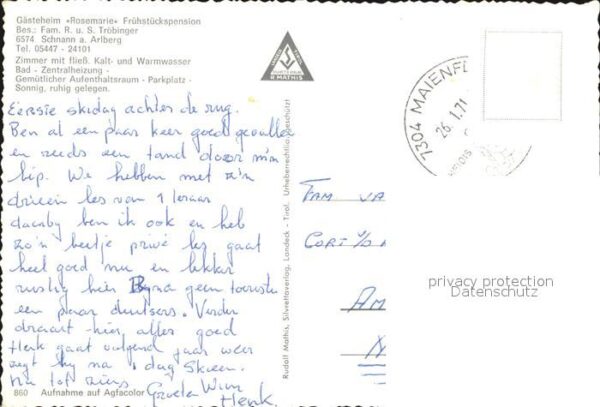 Gästeheim »Rosemarie« Frühstückspension
Bes.: Fam. R. u. S. Tröbinger
6574 Schnann a. Arlberg
Tel. 05447 - 24101
Zimmer mit fließ. Kalt- und Warmwasser
Bad - Zentralheizung -
Gemütlicher Aufenthaltsraum - Parkplatz -
Sonnig, ruhig gelegen.
Eerste skidag achter de rug.
Ben al een paar keer goed gevallen
en reeds een tand door m'n
lip. We hebben met z'n
drieën les van 1 leraar
daarbij ben ik ook en heb
zo'n beetje privé les gaat
heel goed nu en lekker
rustig hier Byna geen toeristen
een paar duitsers. Verder
draait hier alles goed
Henk gaat volgend jaar weer
zegt hy na 1 dag skieen.
Nu tot ziens Groeten Wim
Henk.
860 Aufnahme auf Agfacolor
R MATHIS
Rudolf Mathis, Silvrettaverlag, Landeck - Tirol. Urheberrechtlich geschützt!
7304 MAIENF
26.1.71
FAM VA
CORT V/D
AM
privacy protection
Datenschutz